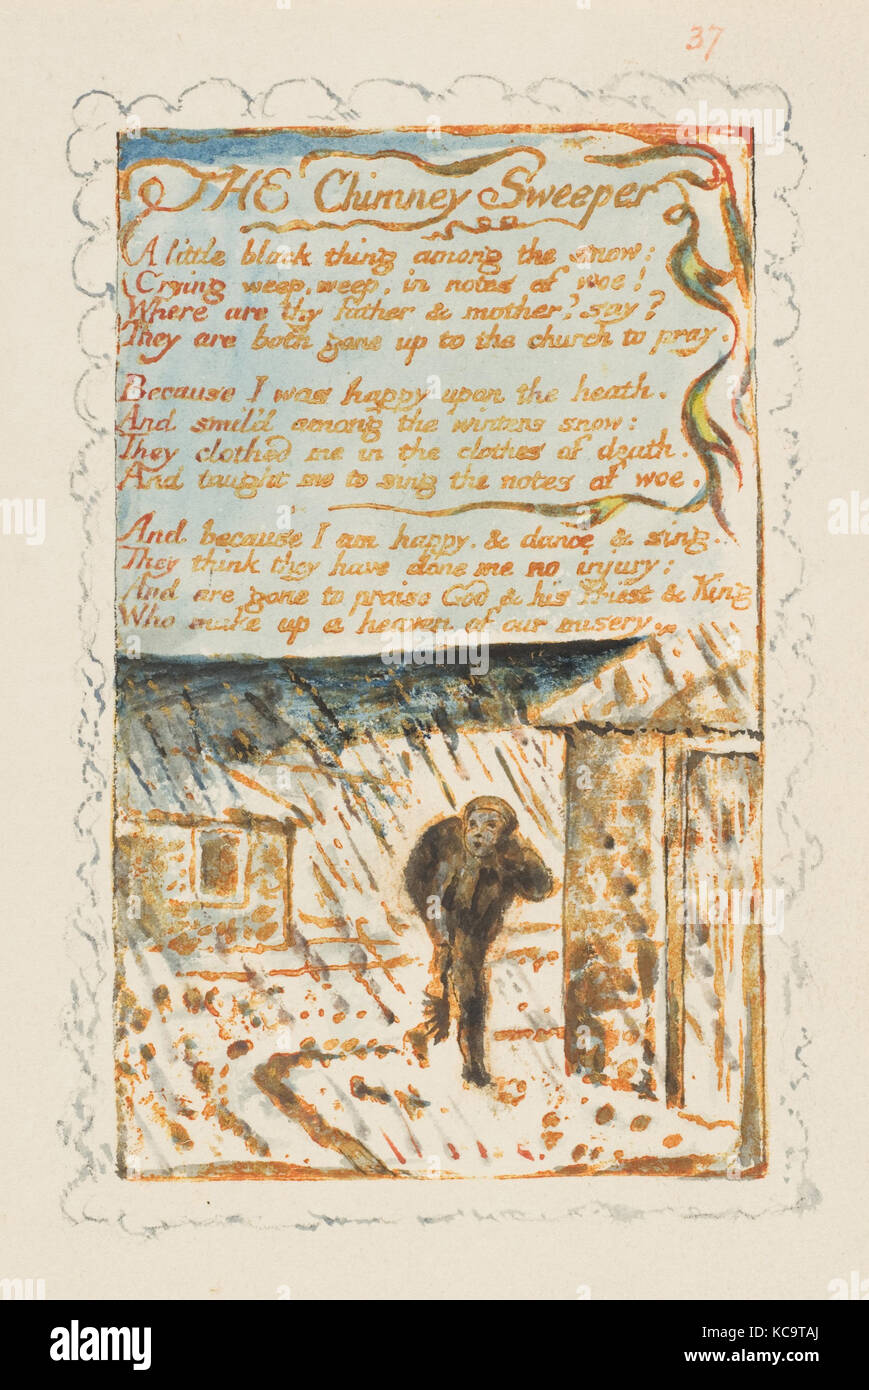 37
THE Chimney Sweeper
A little black thing among the snow:
Crying weep, weep, in notes of woe!
Where are thy father & mother? say?
They are both gone up to the church to pray.
Because I was happy upon the heath.
And smil'd among the winters snow:
They clothed me in the clothes of death.
And taught me to sing the notes of woe.
And because I am happy. & dance & sing.
They think they have done me no injury:
And are gone to praise God & his Priest & King
Who make up a heaven of our misery.
alamy
Image ID: KC9TAJ
www.alamy.com